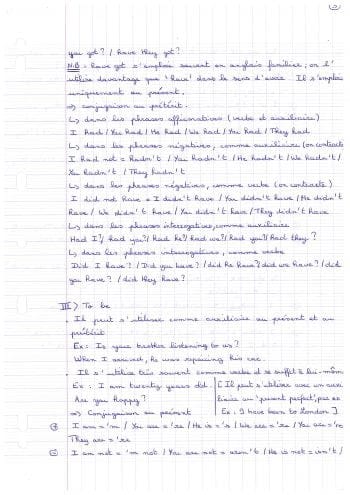 you got? / Have they got?
N.B: Have got s'emploie souvent en anglais familier, on l'
utilise davantage que "Have" dans le sens d'avoir. Il s'emploie
uniquement au présent.
⇒ conjugaison au prétérit.
↳ dans les phrases affirmatives (verbe et auxiliaire)
I had / You had / He had / We had / You had / They had
↳ dans les phrases négatives, comme auxiliaire (on contracte
I had not = hadn't / You hadn't / He hadn't / We hadn't /
You hadn't / They hadn't
↳ dans les phrases négatives, comme verbe (on contracte)
I did not have = I didn't have / You didn't have / He didn't
have / We didn't have / You didn't have / They didn't have
↳ dans les phrases interrogatives, comme auxiliaire
Had I? / Had you? / Had he? / Had we? / Had you? / Had they?
↳ dans les phrases interrogatives, comme verbe
Did I have? / Did you have? / did he have? / did we have? / did
you have? / did they have?
III) To be
. Il peut s'utiliser comme auxiliaire au présent et au
prétérit
Ex: Is your brother listening to us?
When I arrived, he was repairing his car.
. Il s'utilise très souvent comme verbe et se suffit à lui-même
Ex: I am twenty years old. [Il peut s'utiliser avec un auxi
Are you happy? liaire au "present perfect",
⇒ Conjugaison au présent Ex: I have been to London]
I am = 'm / You are = 're / He is = 's / We are = 're / You are = 're
They are = 're
I am not = 'm not / You are not = aren't / He is not = isn't /